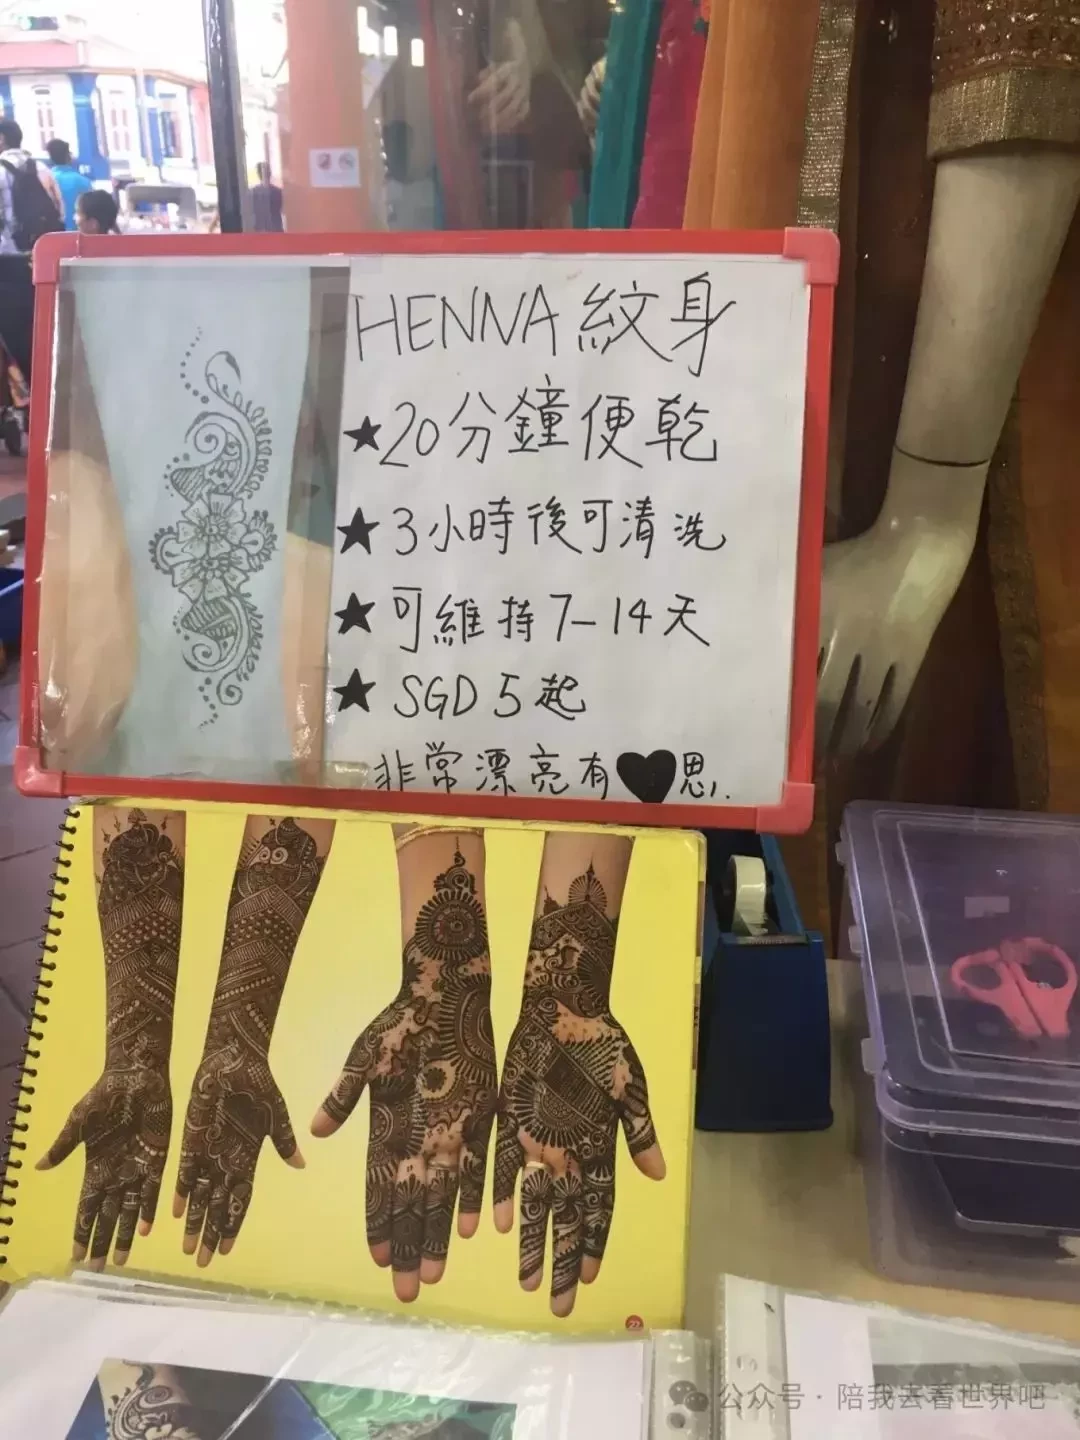 HENNA 紋身
★20分鐘便乾
★3小時後可清洗
★可維持7-14天
★SGD 5起
非常漂亮有♥思.
27
公众号·陪我去看世界吧